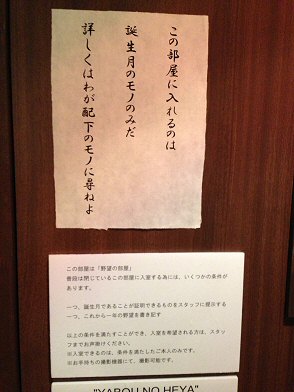 この部屋に入れるのは
誕生月のモノのみだ
詳しくはわが配下のモノに尋ねよ
この部屋は「野望の部屋」
普段は閉じているこの部屋に入室する為には、いくつかの条件
があります。
一つ、誕生月であることが証明できるものをスタッフに提示する
一つ、これから一年の野望を書き記す
以上の条件を満たすことができ、入室を希望される方は、スタッ
フまでお声掛けください。
※入室できるのは、条件を満たしたご本人のみです。
※お手持ちの撮影機器にて、撮影可能です。
"YABOU NO HEYA"